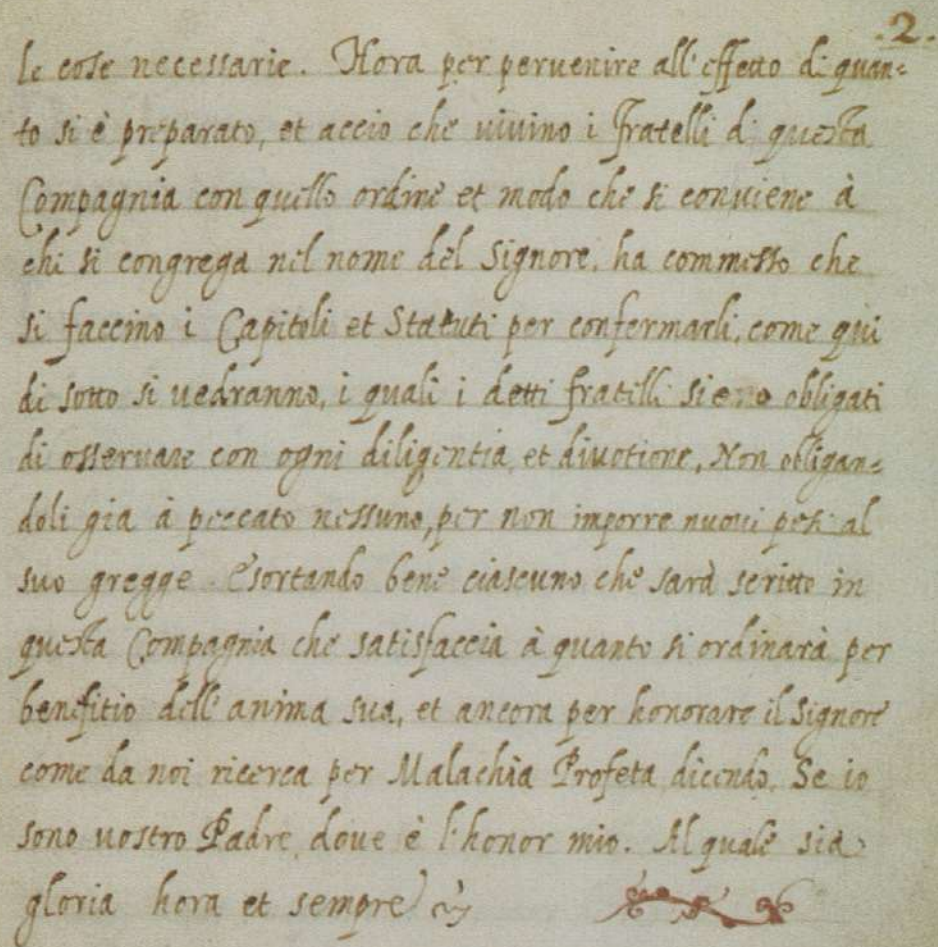 .2.
le cose necessarie. Hora per pervenire all'effetto di quan=
to si è preparato, et accio che uiuino i fratelli di questa
Compagnia con quello ordine et modo che si conuiene à
chi si congrega nel nome del Signore, ha commesso che
si faccino i Capitoli et Statuti per confermarli, come qui
di sotto si uedranno, i quali i detti fratelli sieno obligati
di osseruare con ogni diligentia, et diuotione, Non obligan=
doli gia à peccato nessuno, per non imporre nuoui pesi al
suo gregge. Esortando bene ciascuno che sarà scritto in
questa Compagnia che satisfaccia à quanto si ordinarà per
benefitio dell'anima sua, et ancora per honorare il Signore
come da noi ricerca per Malachia Profeta dicendo, Se io
sono uostro Padre, doue è l'honor mio. Al quale sia
gloria hora et sempre